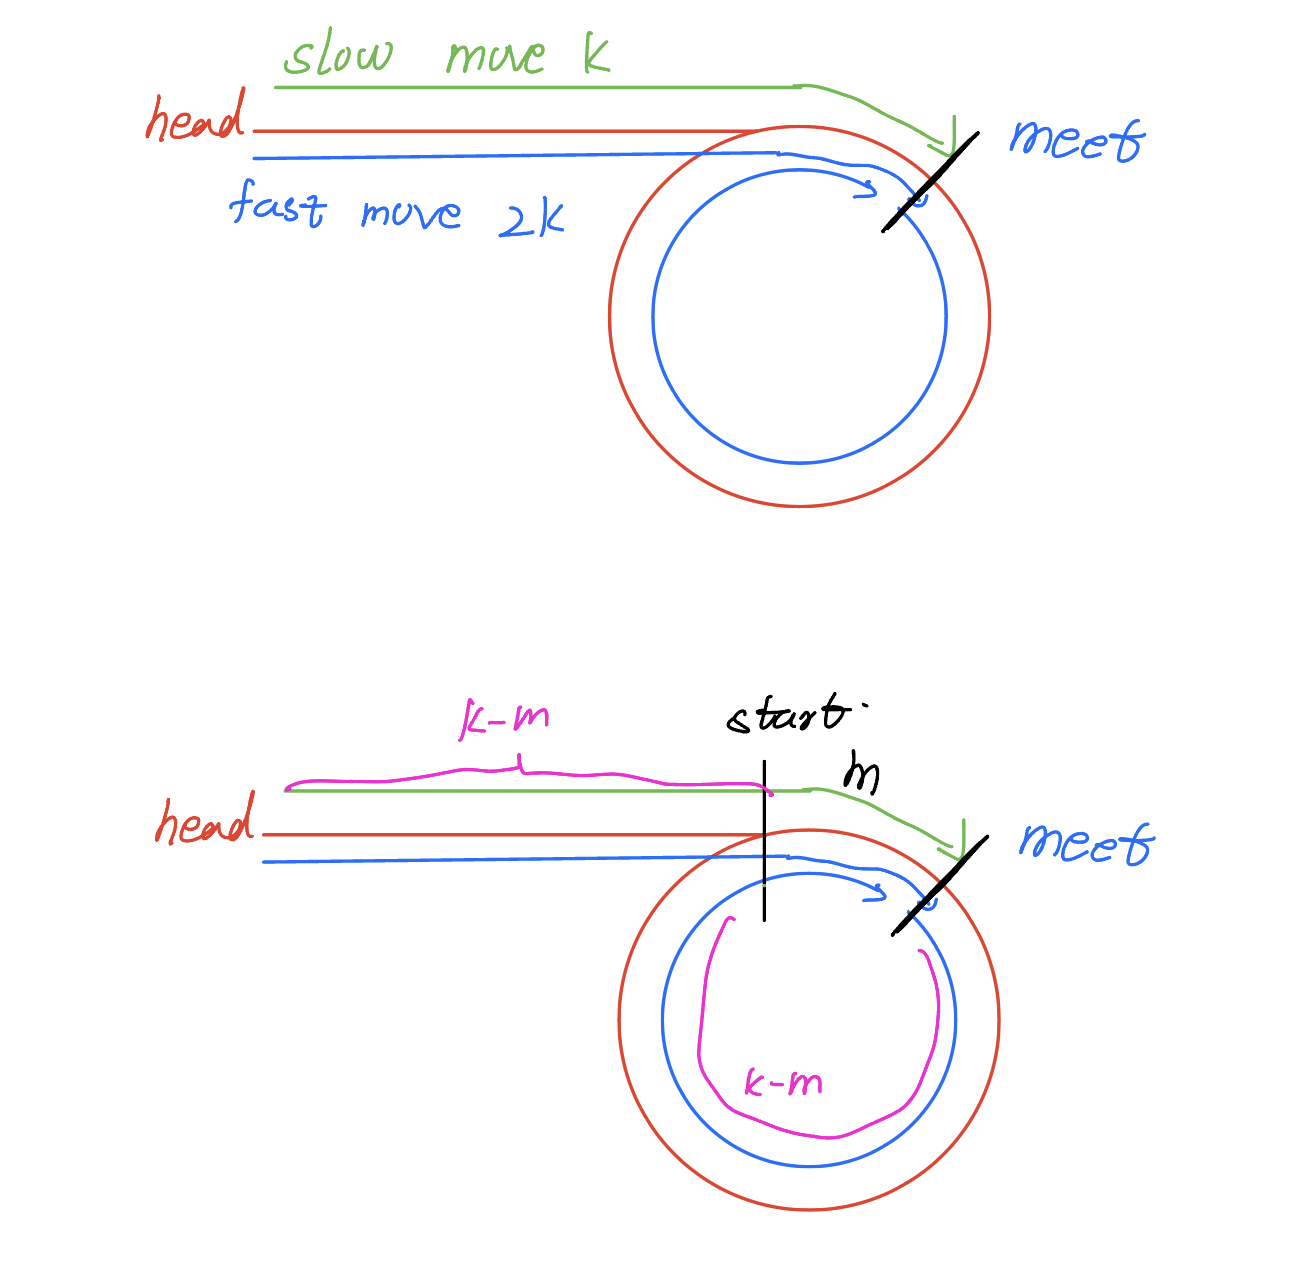 slow move k
head
meet
fast move 2k
k-m
start.
m
head
meet
k-m